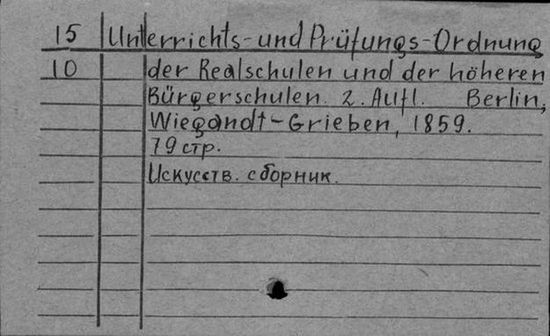 15 Unterrichts-und Prüfungs-Ordnung
10 der Realschulen und der höheren
Bürgerschulen. 2. Aufl. Berlin,
Wiegandt-Grieben, 1859.
79 стр.
Искусств. сборник.